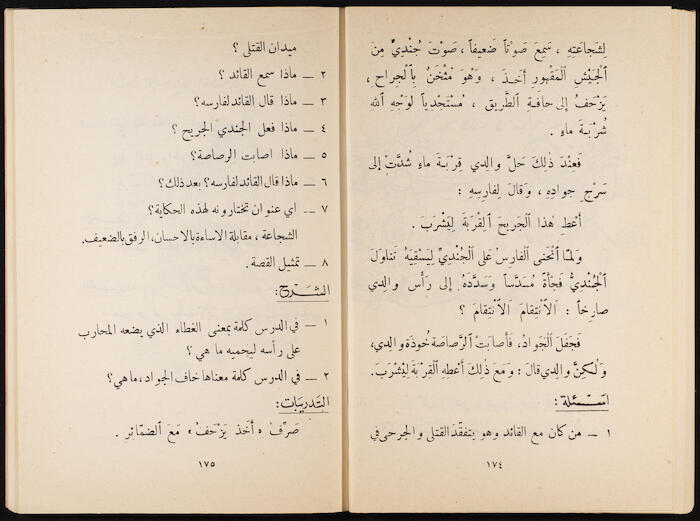 لِشجاعَتِهِ ، سَمِعَ صَوْتاً ضَعيفاً ، صَوْتَ جُنْدِيٍّ مِنَ
اَلْجَيْشِ اَلْمَقْهورِ أَخَـذَ ، وَهُوَ مُثْخَنٌ بِالْجِراحِ ،
يَزْحَفُ إلى حافَـةِ الطَّريقِ ، مُسْتَجْدِياً لِوَجْهِ اَللهِ
شُرْبَـةَ ماءٍ .
فَعِنْدَ ذٰلِكَ حَلَّ والِدي قِرْبَـةَ ماءٍ شُدَّتْ إلى
سَرْجِ جوادِهِ ، وَقالَ لِفارِسِهِ :
أَعْطِ هٰذا اَلْجَريحَ اَلْقِرْبَةَ لِيَشْرَبَ .
وَلَمّا اَنْحَنى اَلْفارِسُ على اَلْجُنْدِيِّ لِيَسْقِيَهُ تَناوَلَ
اَلْجُنْدِيُّ فَجْأَةً مُسَدَّساً وَسَدَّدَهُ إلى رَأْسِ والِدي
صارِخاً : اَلاِنْتِقامَ اَلاِنْتِقامَ ؟
فَجَفَلَ اَلْجَوادُ ، فَأَصابَتْ اَلرَّصاصَةُ خُوذَةَ والِدي ،
وَلٰكِنَّ والِدي قالَ : وَمَعَ ذٰلِكَ أَعْطِهِ اَلْقِرْبَةَ لِيَشْرَبَ .
اسـئـلة :
١ ــ من كان مع القائد وهو يتفقد القتلى والجرحى في
١٧٤
ميدان القتلى ؟
٢ ــ ماذا سمع القائد ؟
٣ ــ ماذا قال القائد لفارسه ؟
٤ ــ ماذا فعل الجندي الجريح ؟
٥ ــ ماذا اصابت الرصاصة ؟
٦ ــ ماذا قال القائد لفارسه ؟ بعد ذلك ؟
٧ ــ اي عنوان تختارونه لهذه الحكاية ؟
الشجاعة ، مقابلة الاساءة بالاحسان ، الرفق بالضعيف .
٨ ــ تمثيل القصة .
الشرح :
١ ــ في الدرس كلمة بمعنى الغطاء الذي يضعه المحارب
على رأسه ليحميه ما هي ؟
٢ ــ في الدرس كلمة معناها خاف الجواد ، ما هي ؟
التدريبات :
صَرِّفْ « أَخَذَ يَزْحَفُ » مَعَ الضَّمائِرِ .
١٧٥